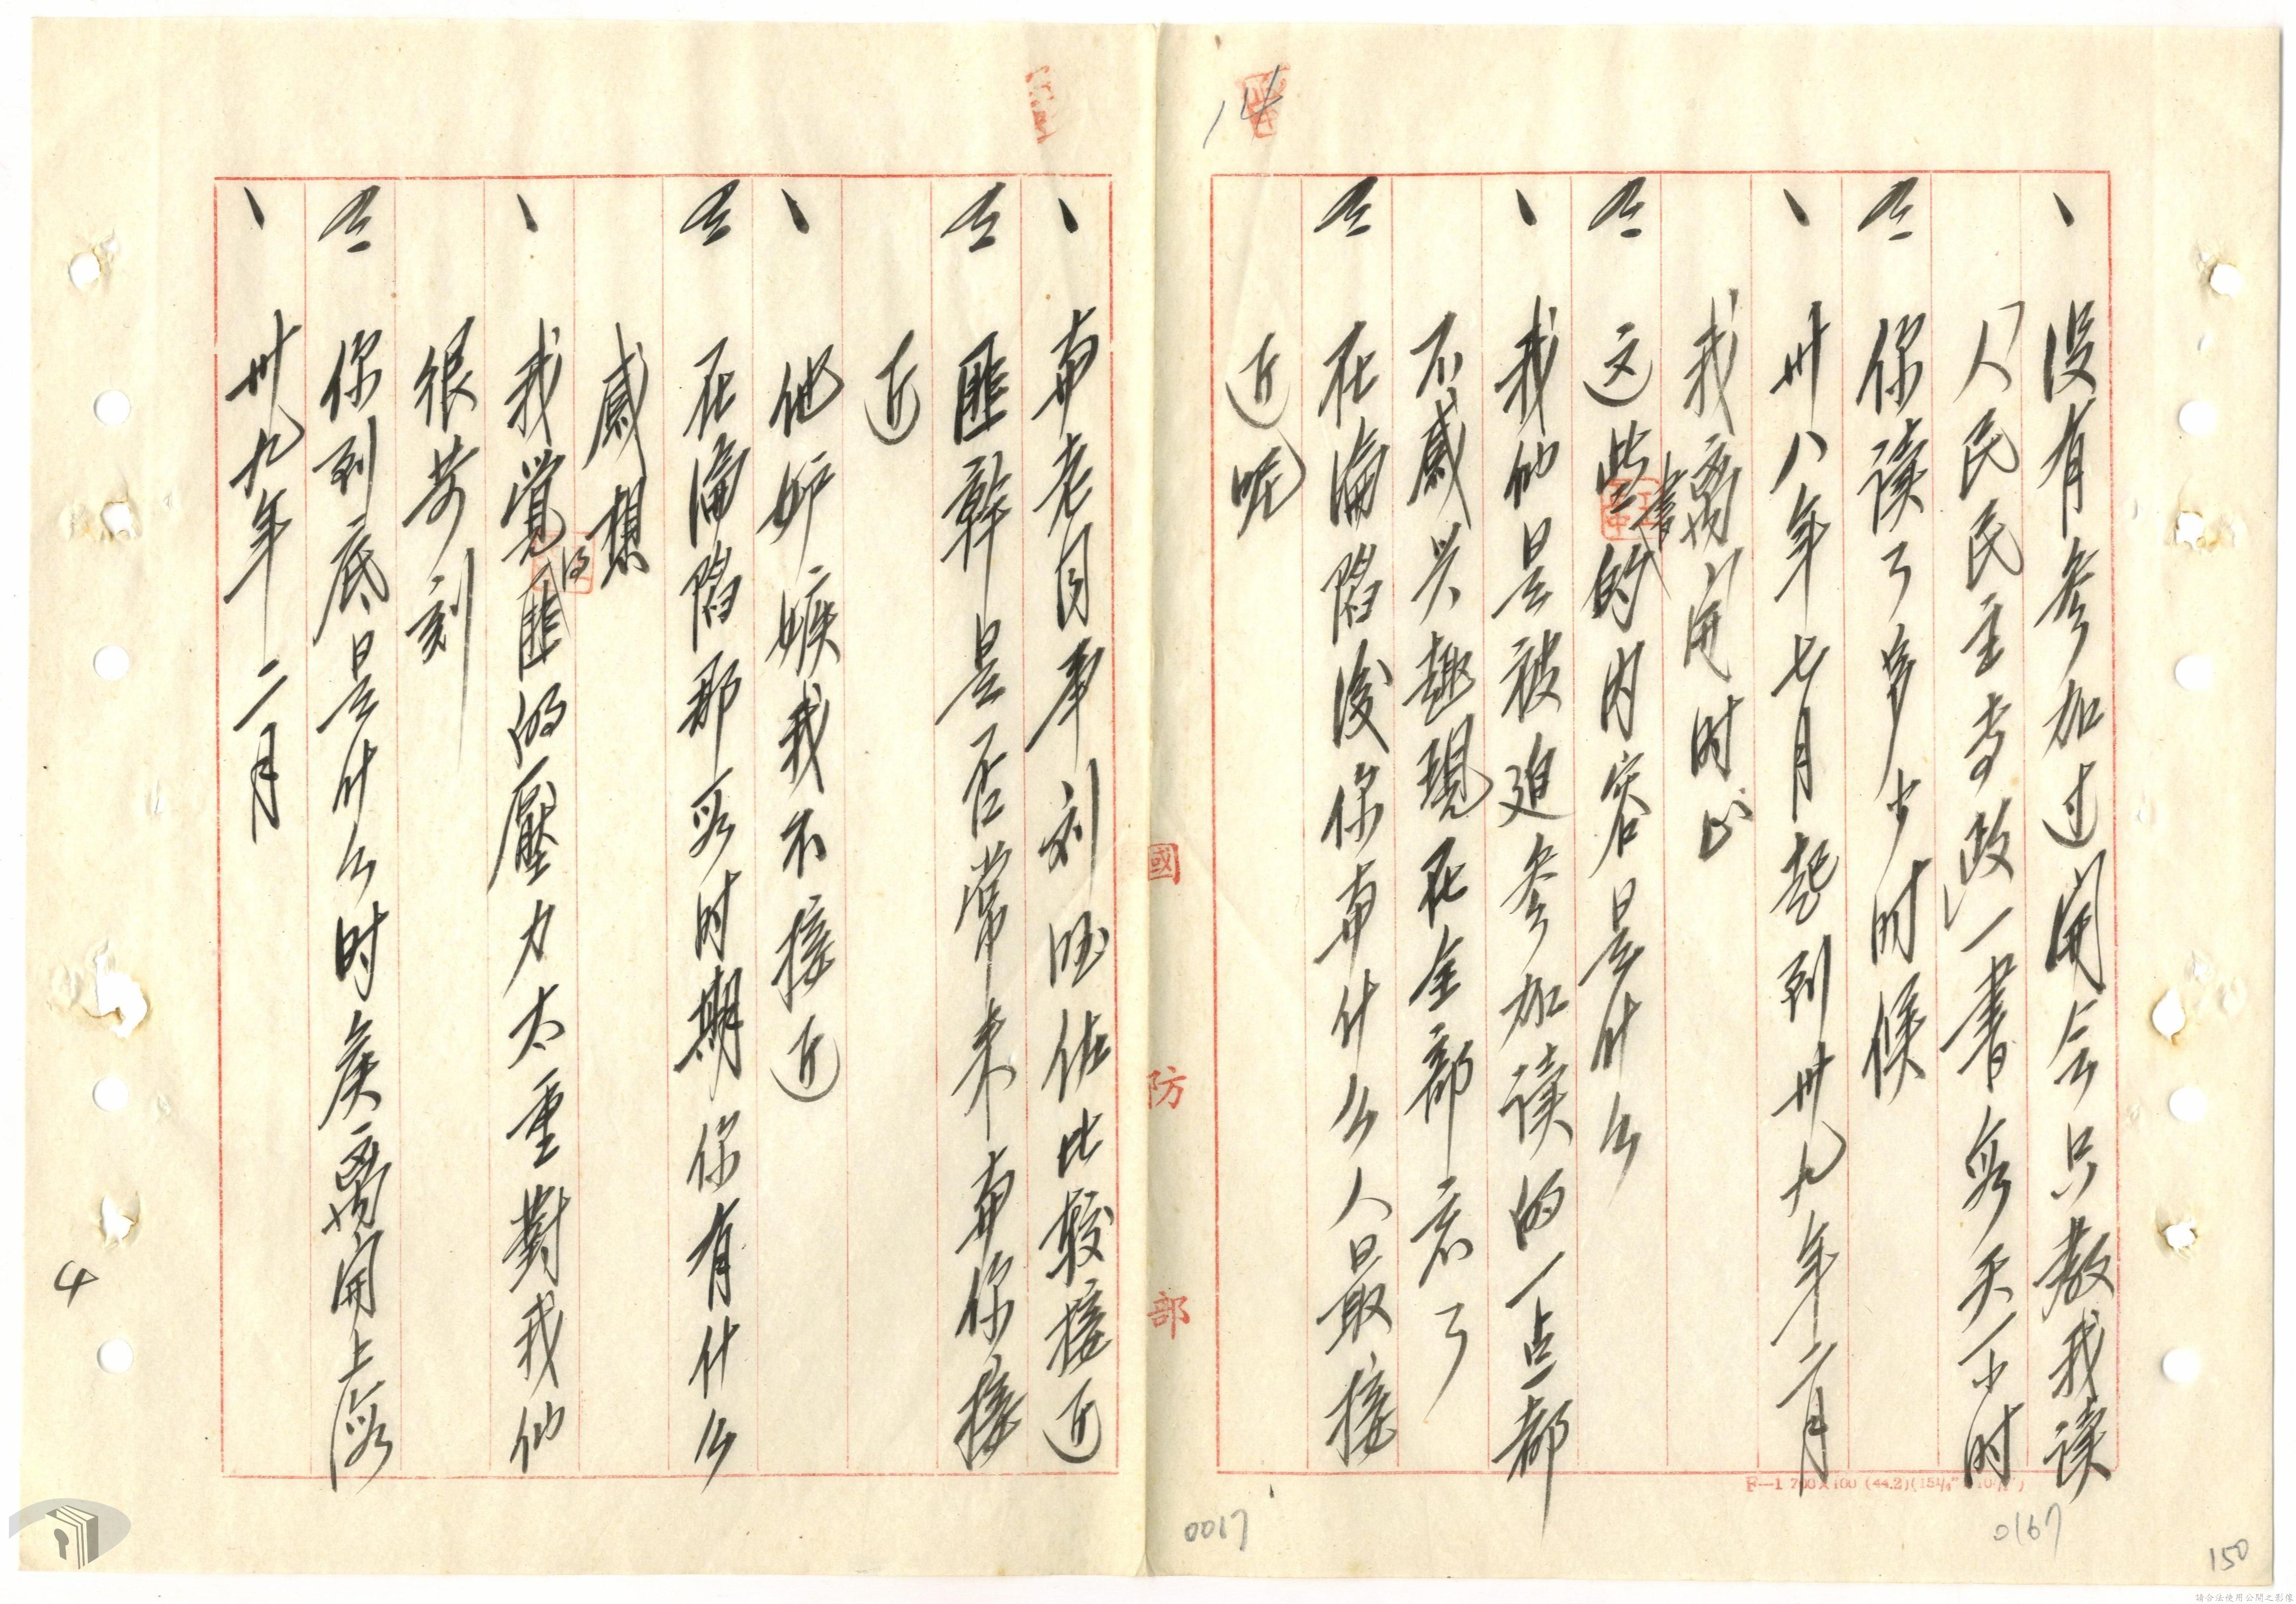 14
、 沒有参加过開会只教我读
「人民民主专政」一書每天一小时
仝 你读了多少时候
、 卅八年七月起到卅九年二月
我離開时止
仝 这些書的内容是什么
、 我他是被迫参加读的一点都
不感兴趣現在全部忘了
仝 在淪陷後你和什么人最接
近呢
國防部
、 和老同事刘 佐比較接近
仝 匪幹是否常來和你接
近
、 他妒嫉我不接近
仝 在淪陷那段时期你有什么
感想
、 我覚得匪的壓力太重對我他
很苛刻
仝 你到底是什么时矦離開上海
、 卅九年二月
4
0017
0167
150
請合法使用公開之影像